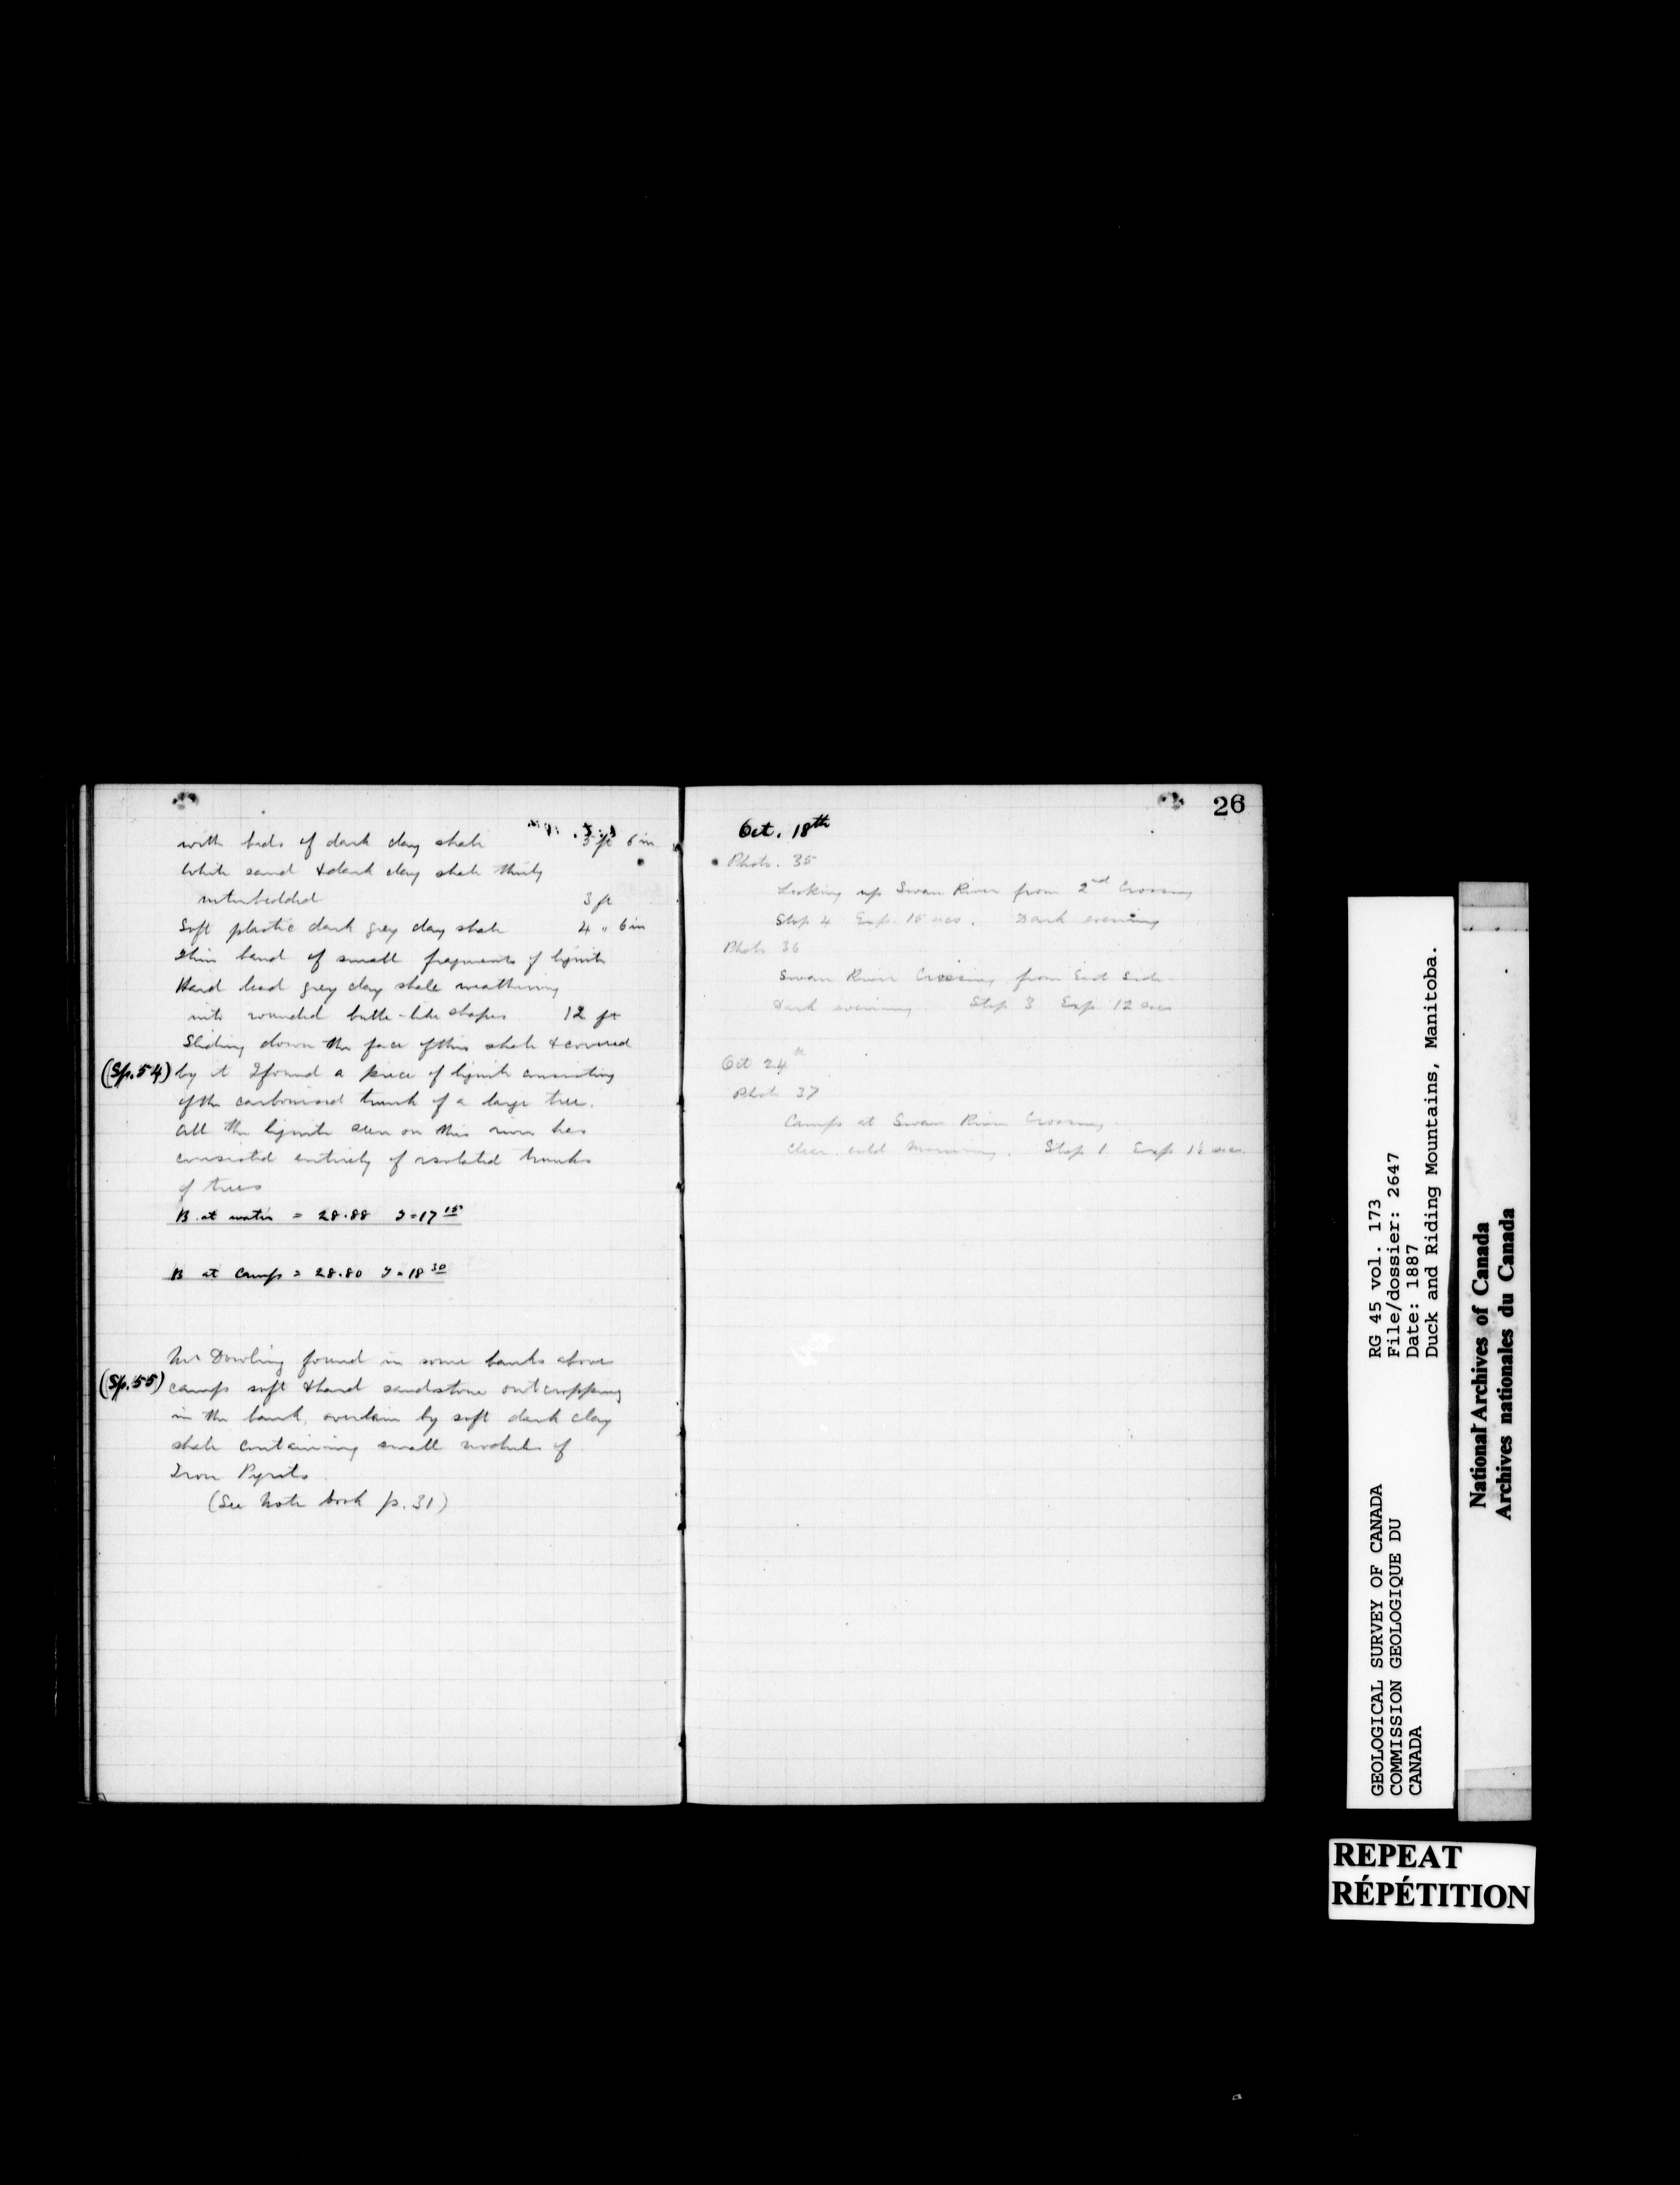 with beds of dark clay shale 3 ft 6 in
White sand & dark clay shale thinly
interbedded 3 ft
Soft plastic dark grey clay shale 4 " 6 in
Thin band of small fragments of lignite
Hard lead grey clay shale weathering
into rounded butte-like shapes 12 ft
Sliding down the face of this shale & covered
(Sp. 54) by it I found a piece of lignite consisting
of the carbonised trunk of a large tree.
All the lignite seen on this river has
consisted entirely of isolated trunks
of trees
B. at water = 28.88 T=17 15
B at camp = 28.80 T=18 30
Mr Dowling found in some banks above
(Sp. 55) camp soft & hard sandstone outcropping
in the bank, overlain by soft dark clay
shale containing small nodules of
Iron Pyrites
(See Note book p. 31)
26
Oct. 18th
Photo. 35
Looking up Swan River from 2nd Crossing
Stop 4 Exp. 15 secs. Dark evening
Photo 36
Swan River Crossing from East Side
Dark evening. Stop 3 Exp 12 secs
Oct 24th
Photo 37
Camp at Swan River Crossing.
Clear cold Morning. Stop 1 Exp sec.
GEOLOGICAL SURVEY OF CANADA
COMMISSION GEOLOGIQUE DU
CANADA
RG 45 vol. 173
File/dossier: 2647
Date: 1887
Duck and Riding Mountains, Manitoba.
National Archives of Canada
Archives nationales du Canada
REPEAT
RÉPÉTITION